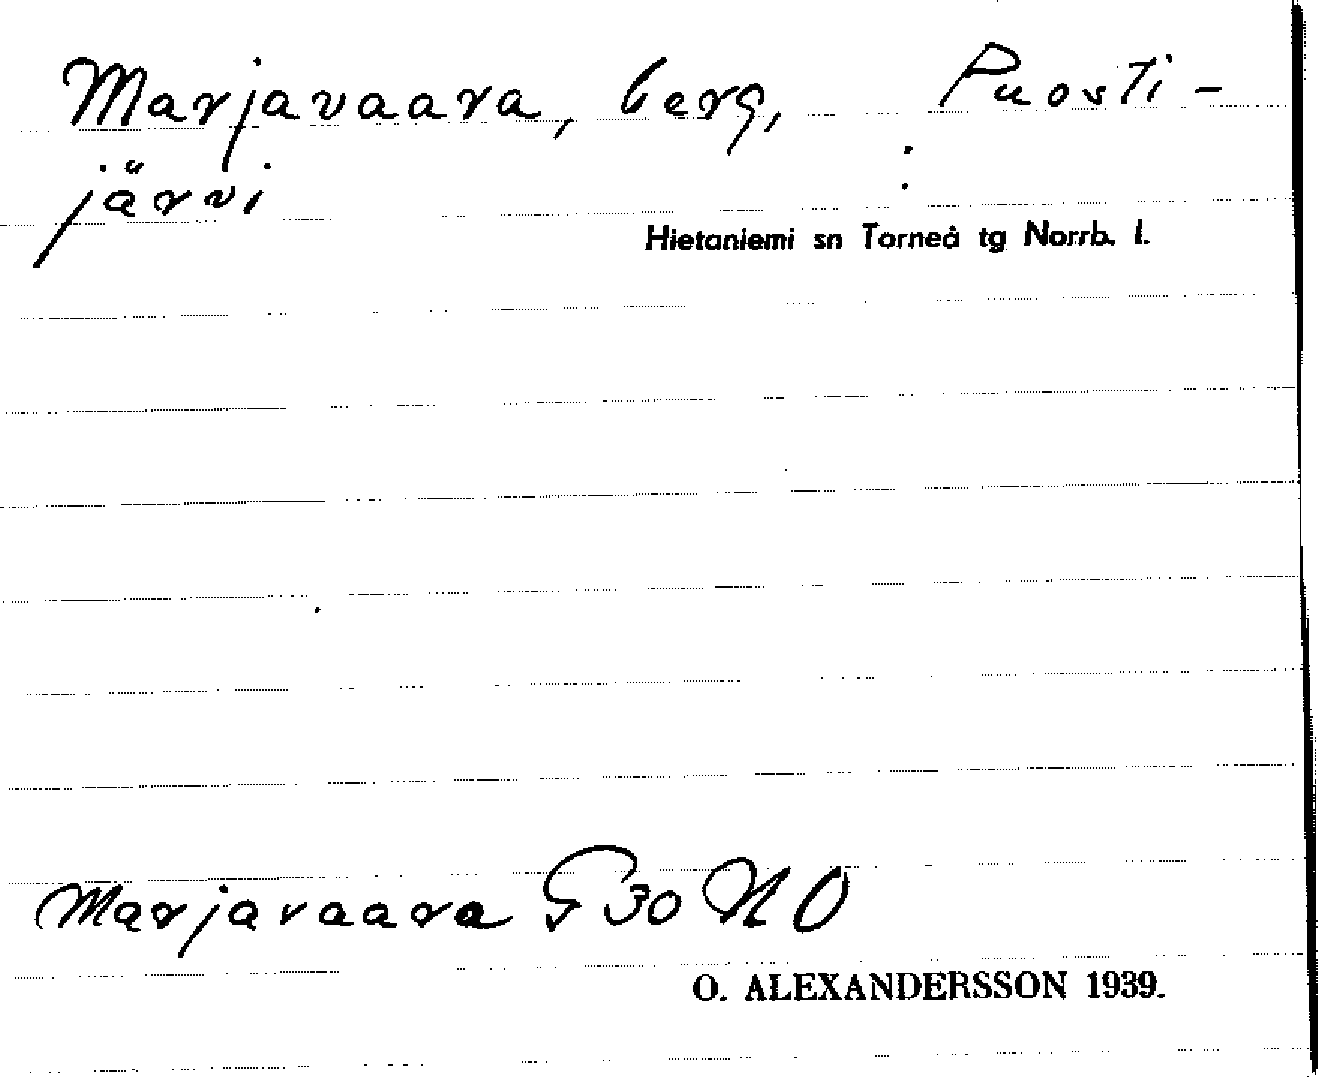 Marjavaara, berg, Puosti-
järvi
Hietaniemi sn Torneå tg Norrb. l.
Marjavaara G 30 NO
O. ALEXANDERSSON 1939.